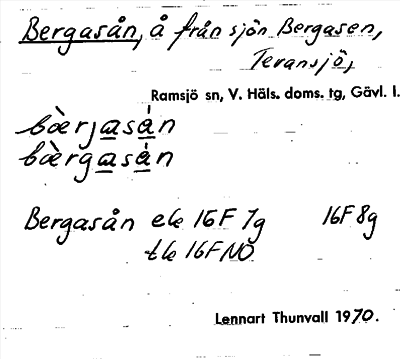 Bergasån, å från sjön Bergasen,
Tevansjö,
Ramsjö sn, V. Häls. doms. tg, Gävl. l.
bàerjasán
bàergasán
Bergasån ek 16F 7g 16F 8g
tk 16F NO
Lennart Thunvall 1970.